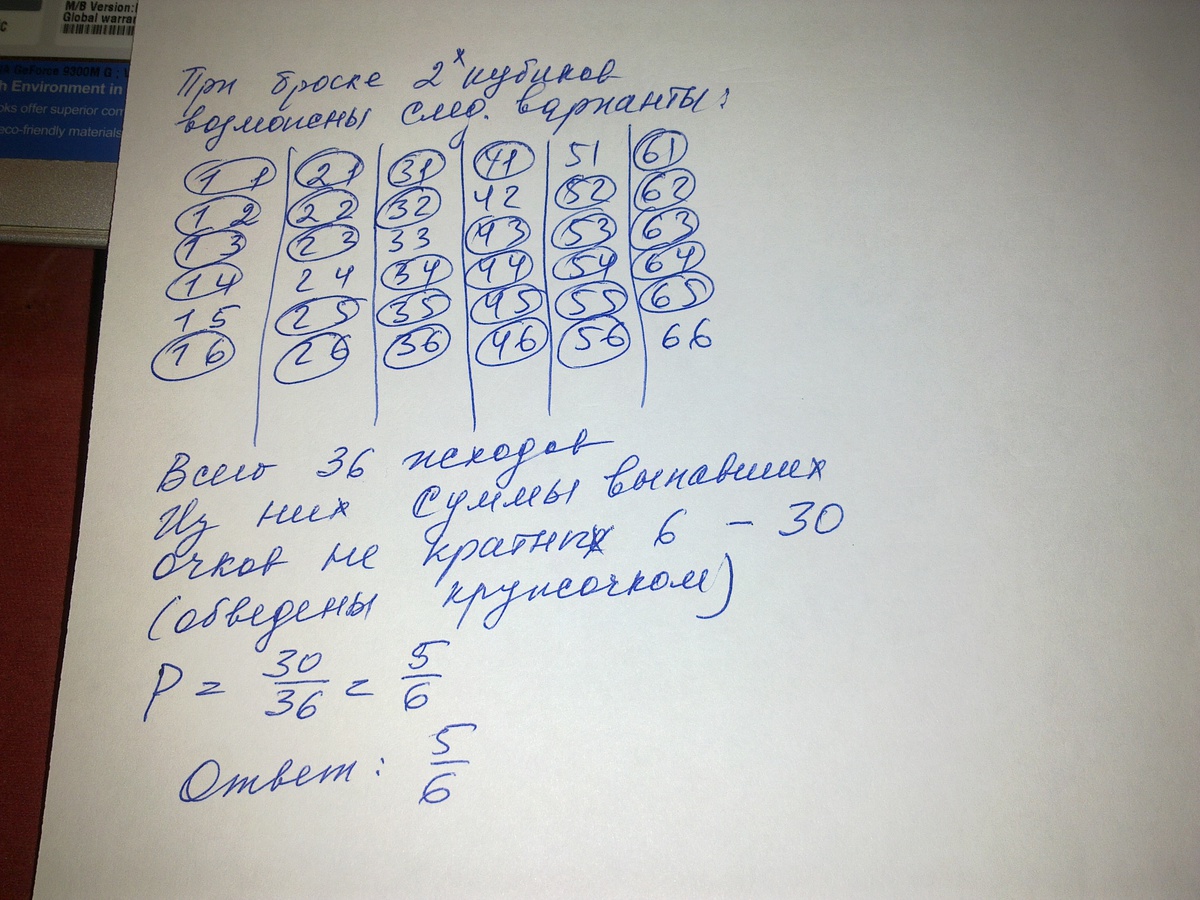 M/B Version:
Global warra
GeForce 9300M G ;
h Environment in
oks offer superior com
eco-friendly materials
При броске 2х кубиков
возможны след. варианты:
11 21 31 41 51 61
12 22 32 42 52 62
13 23 33 43 53 63
14 24 34 44 54 64
15 25 35 45 55 65
16 26 36 46 56 66
Всего 36 исходов
Из них суммы выпавших
очков не кратных 6 - 30
(обведены кружочком)
P = 30/36 = 5/6
Ответ: 5/6